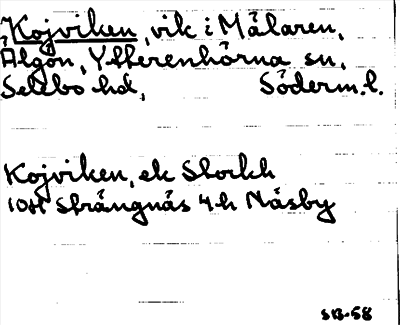 Kojviken, vik i Mälaren,
Algön, Ytterenhörna sn,
Selebo hd, Söderm.l.
Kojviken, ek Storkh
10H Strängnäs 4h Näsby
SB-58